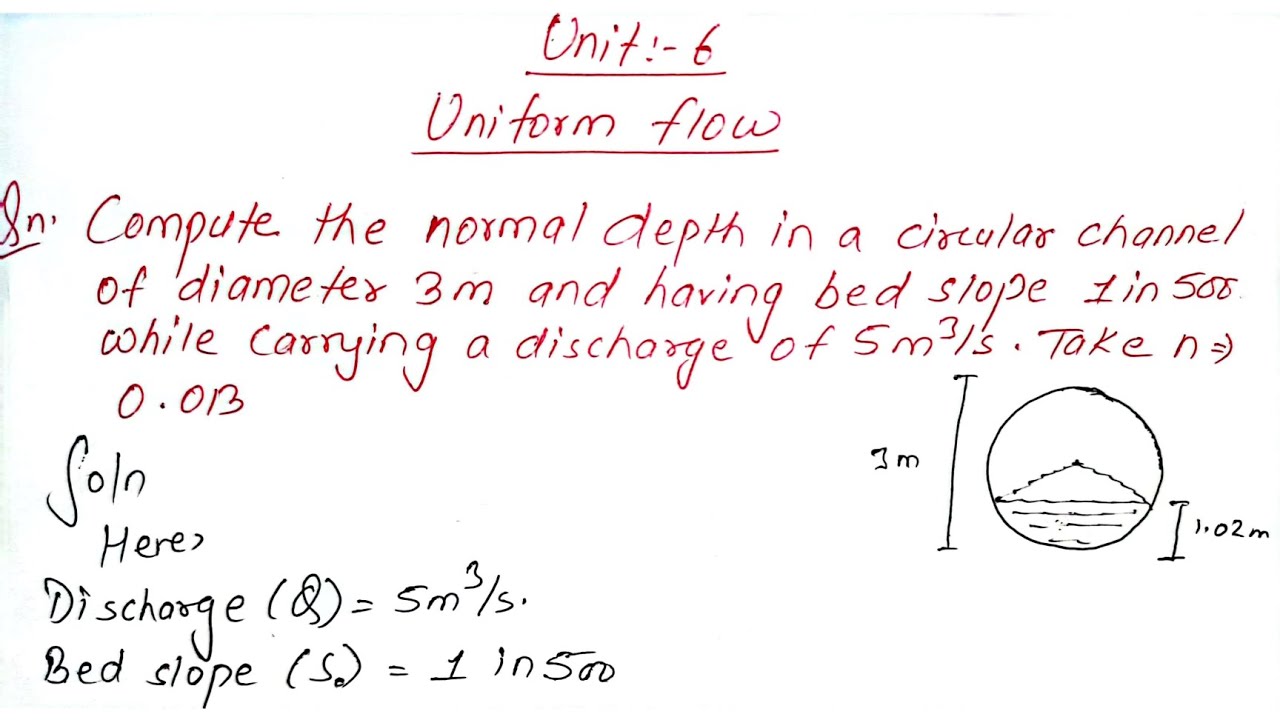 Unit:- 6
Uniform flow
Qn. Compute the normal depth in a circular channel
of diameter 3m and having bed slope 1 in 500
while carrying a discharge of 5m³/s. Take n ⇒
0.013
Soln
Here,
3m
1.02m
Discharge (Q) = 5m³/s.
Bed slope (S₀) = 1 in 500